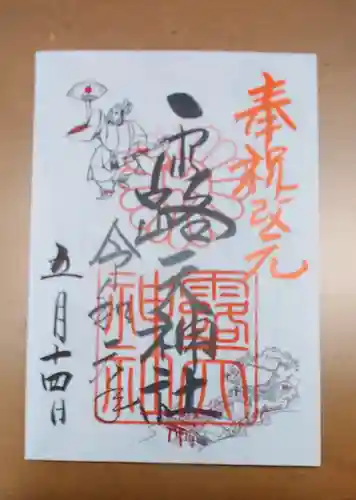 奉祝改元
露天神社
令和元年
五月十四日
露天神社